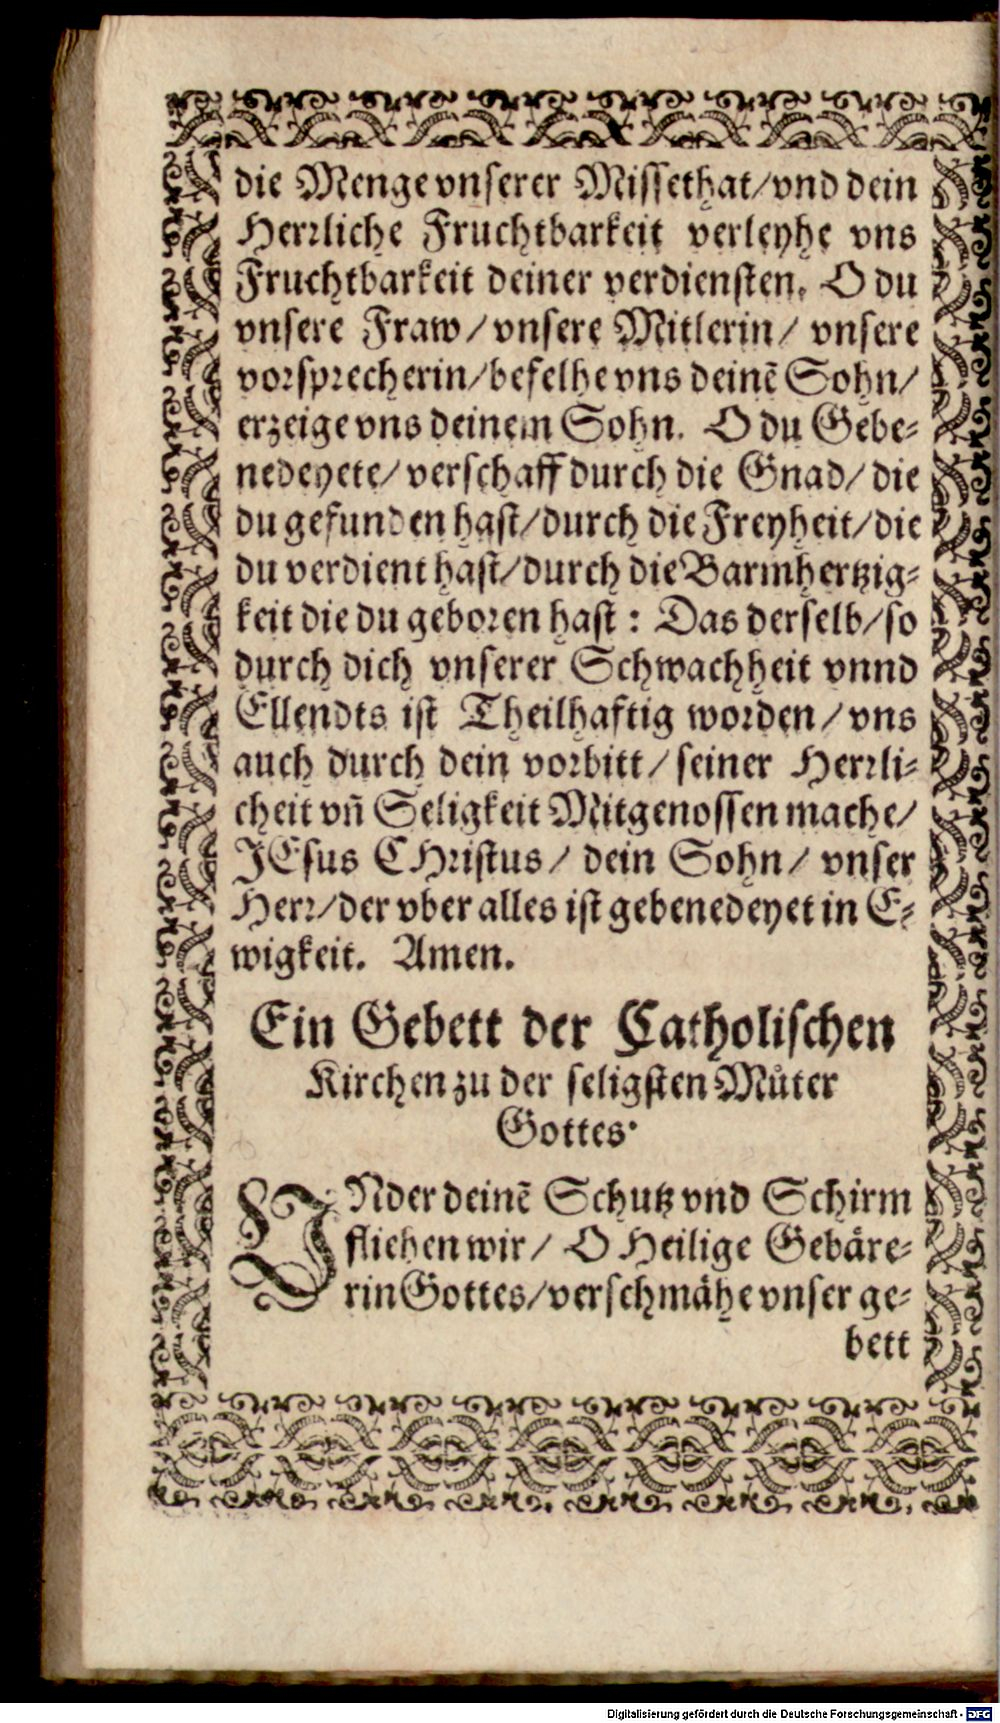 die Menge vnserer Missethat/vnd dein
Herrliche Fruchtbarkeit verleyhe vns
Fruchtbarkeit deiner verdiensten. O du
vnsere Fraw/vnsere Mitlerin/ vnsere
vorsprecherin/befelhe vns deinẽ Sohn/
erzeige vns deinem Sohn. O du Gebe-
nedeyete/ verschaff durch die Gnad/ die
du gefunden hast/durch die Freyheit/die
du verdient hast/durch die Barmhertzig-
keit die du geboren hast: Das derselb/so
durch dich vnserer Schwachheit vnnd
Ellendts ist Theilhaftig worden/vns
auch durch dein vorbitt/seiner Herrli-
cheit vñ Seligkeit Mitgenossen mache/
JEsus CHristus/ dein Sohn/ vnser
Herr/der vber alles ist gebenedeyet in E-
wigkeit. Amen.
Ein Gebett der Catholischen
Kirchen zu der seligsten Můter
Gottes.
VNder deinẽ Schutz vnd Schirm
fliehen wir/ O Heilige Gebäre-
rin Gottes/verschmähe vnser ge-
bett
Digitalisierung gefördert durch die Deutsche Forschungsgemeinschaft - DFG